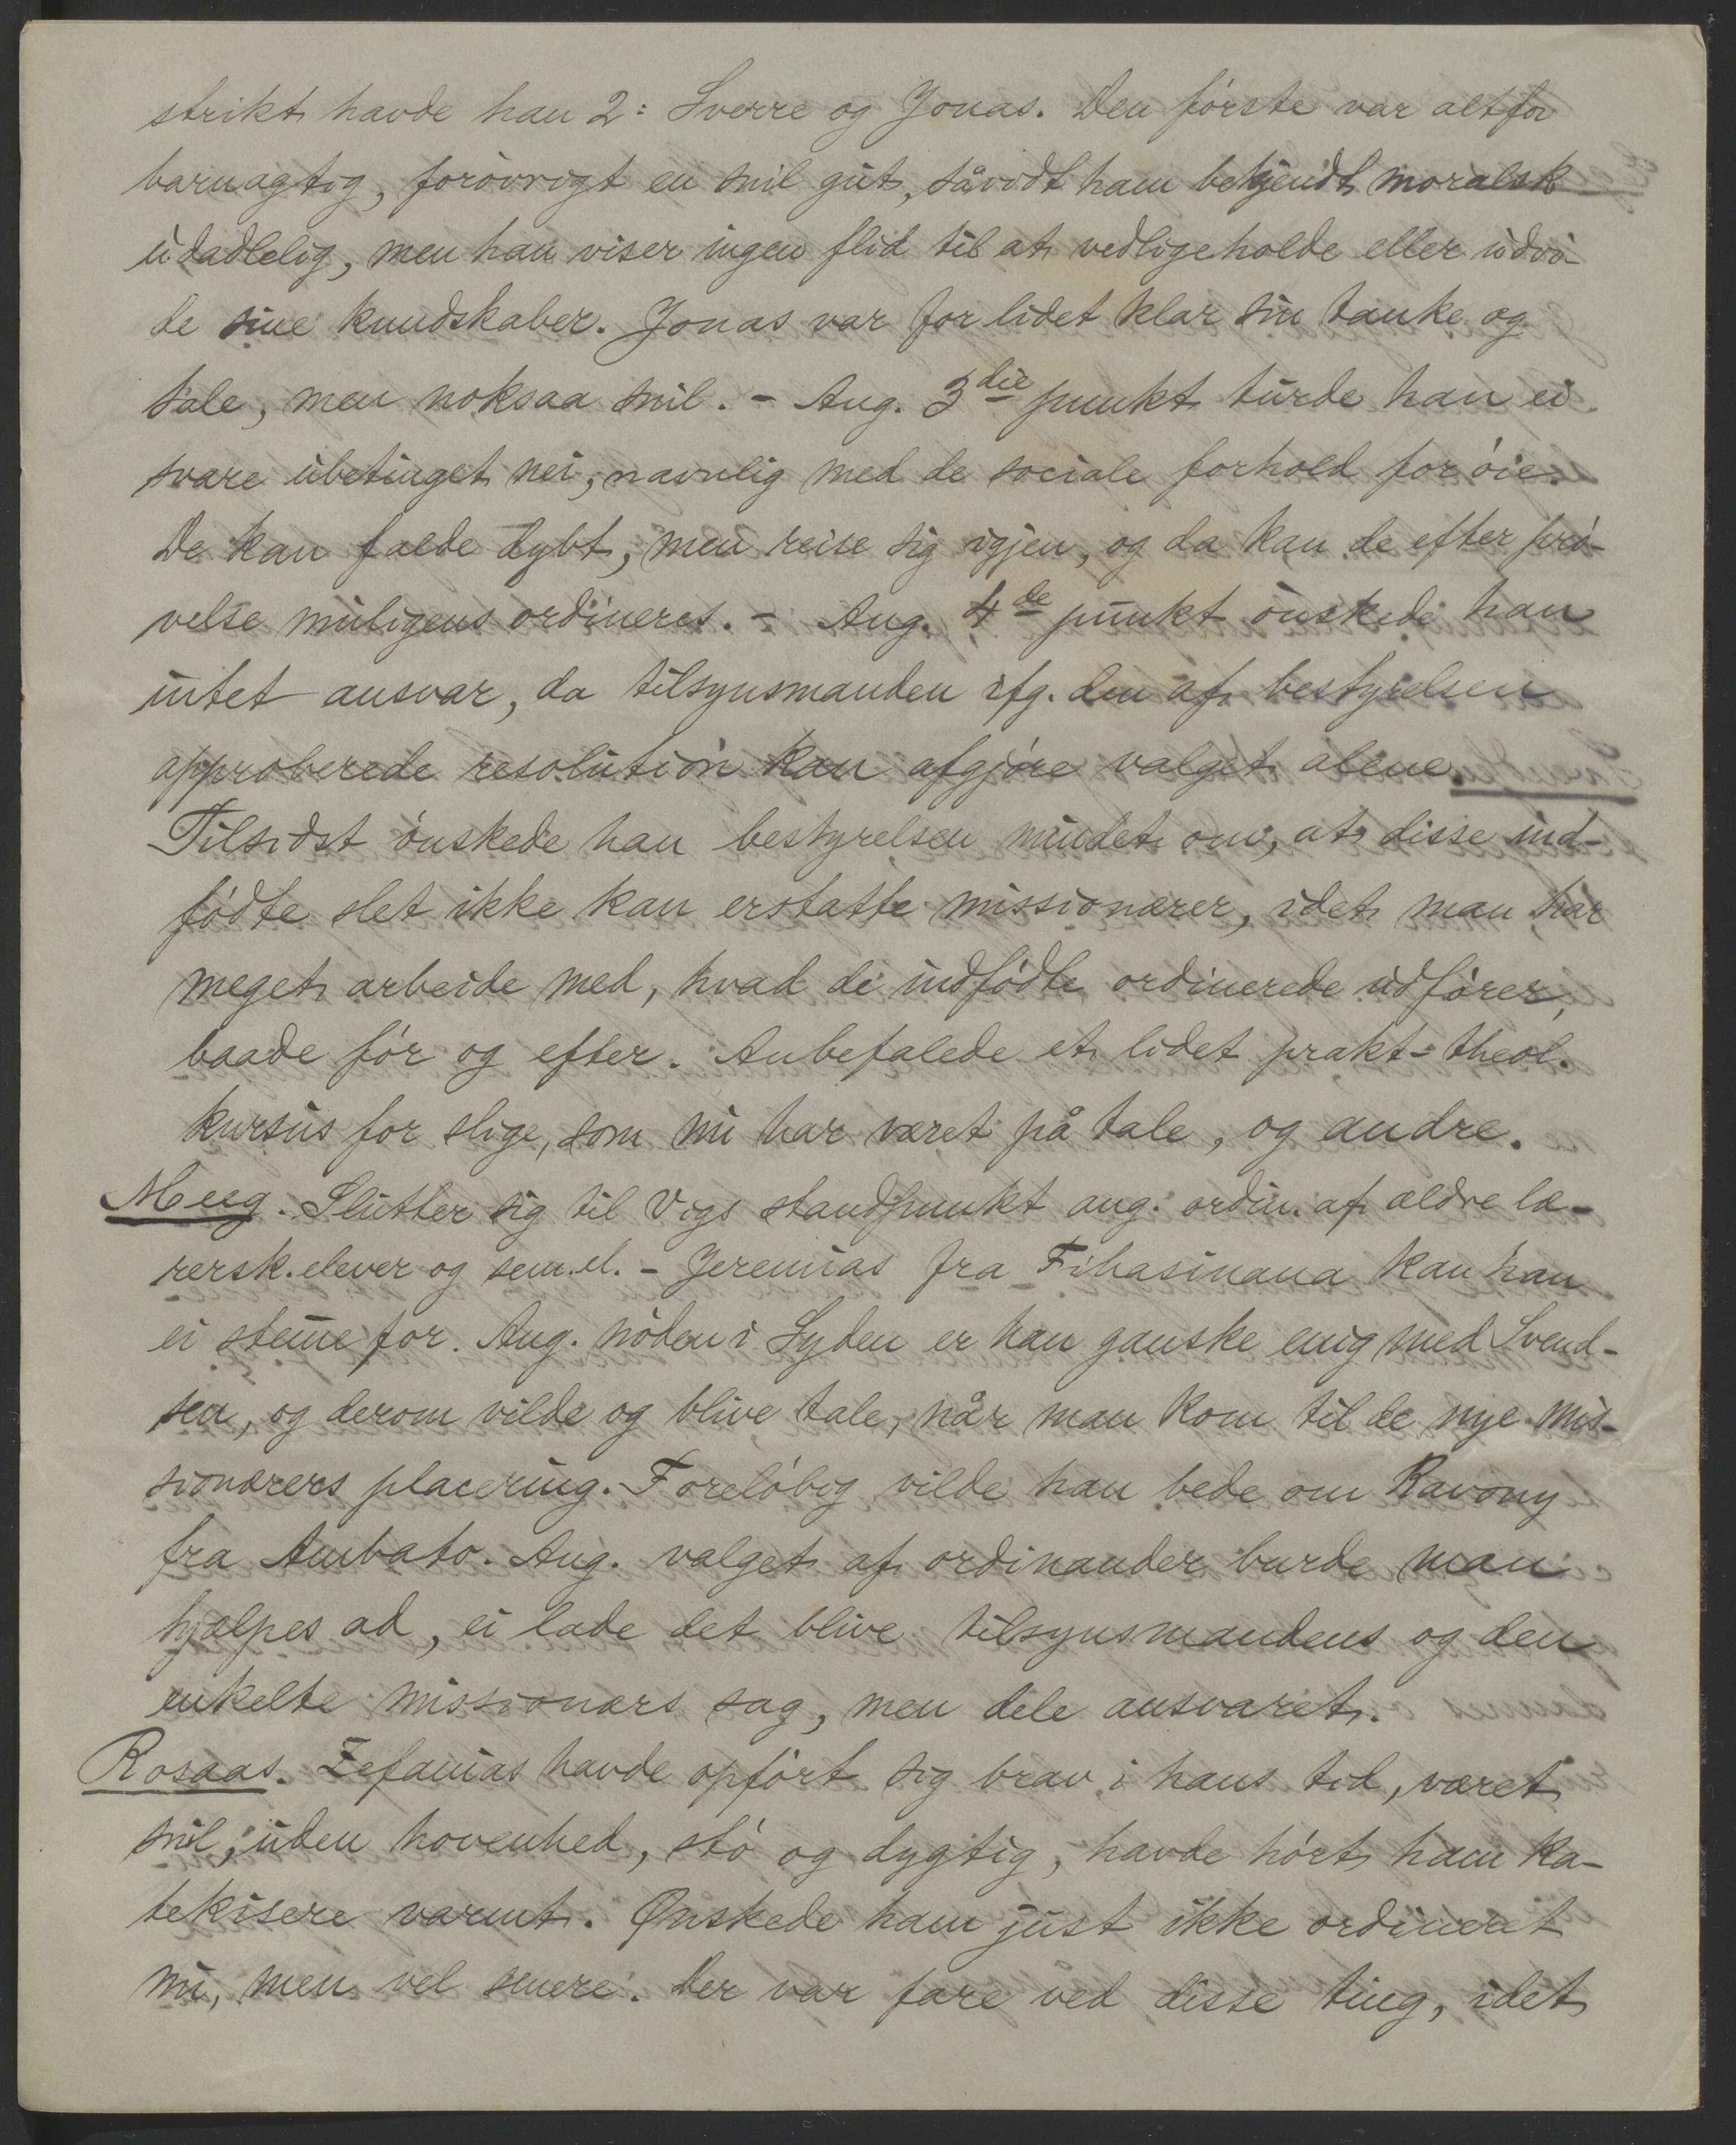 strikt havde han 2: Sverre og Jonas. Den første var altfor
barnagtig, forøvrigt en snil gut, såvidt ham bekjendt moralsk
udadlelig, men han viser ingen flid til at vedligeholde eller udvi-
de sine kundskaber. Jonas var for lidet klar sin tanke og
tale, men noksaa snil. - Ang. 3die punkt turde han ei
svare ubetinget nei, navnlig med de sociale forhold for øie.
De kan falde dybt, men reise sig igjen, og da kan de efter prø-
velse muligens ordineres. - Ang. 4de punkt ønskede han
intet ansvar, da tilsynsmanden ifg. den af bestyrelsen
approberede resolution kan afgjøre valget alene.
Tilsidst ønskede han bestyrelsen mindet om, at disse ind-
fødte slet ikke kan erstatte missionærer, idet man har
meget arbeide med, hvad de indfødte ordinerede udfører,
baade før og efter. Anbefalede et lidet prakt-theol.
kursus for slige, som nu har været på tale, og andre.
Meeg. Slutter sig til Vigs standpunkt ang. ordin. af ældre læ-
rersk.elever og sem.el. - Jeremias fra Fihasinana kan han
ei stem̅e for. Ang. nøden i Syden er han ganske enig med Svend-
sen, og derom vilde og blive tale, når man kom til de nye mis-
sionærers placering. Foreløbig vilde han bede om Ravony
fra Ambato. Ang. valget af ordinander burde man
hjælpes ad, ei lade det blive tilsynsmandens og den
enkelte missionærs sag, men dele ansvaret.
Rosaas. Zefanias havde opført sig brav i hans tid, været
snil, uden hovenhed, stø og dygtig, havde hørt ham ka-
tekisere varmt. Ønskede ham just ikke ordineret
nu, men vel senere. Der var fare ved disse ting, idet